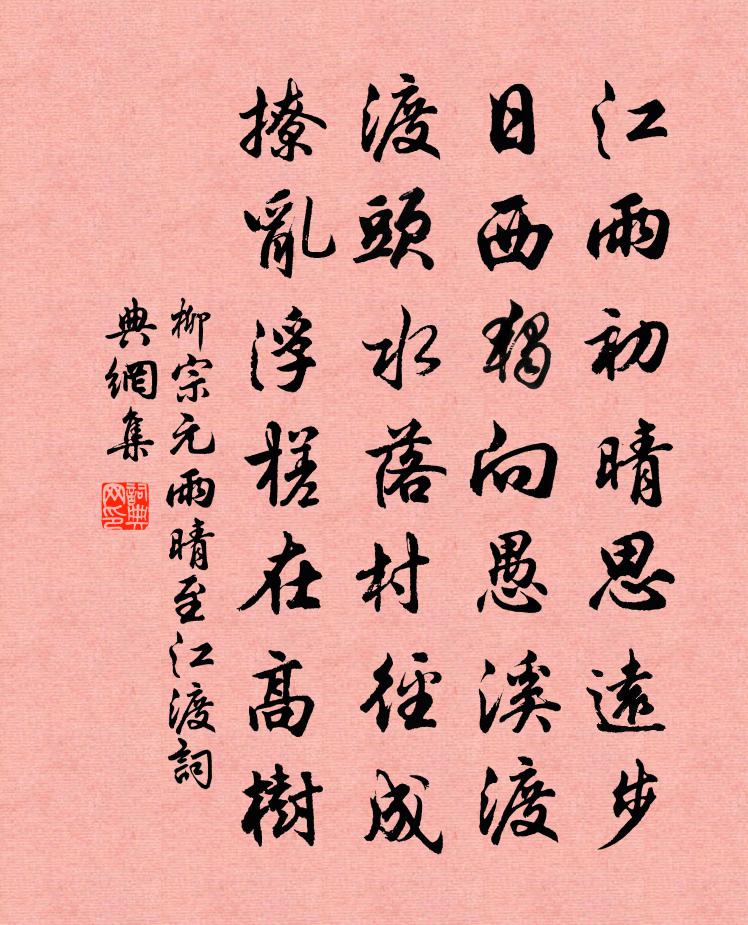 江雨初晴思遠步
日西獨向愚溪渡
渡頭水落村徑成
撩亂浮槎在高樹
柳宗元雨晴至江渡詞
典網集
詞典
网印